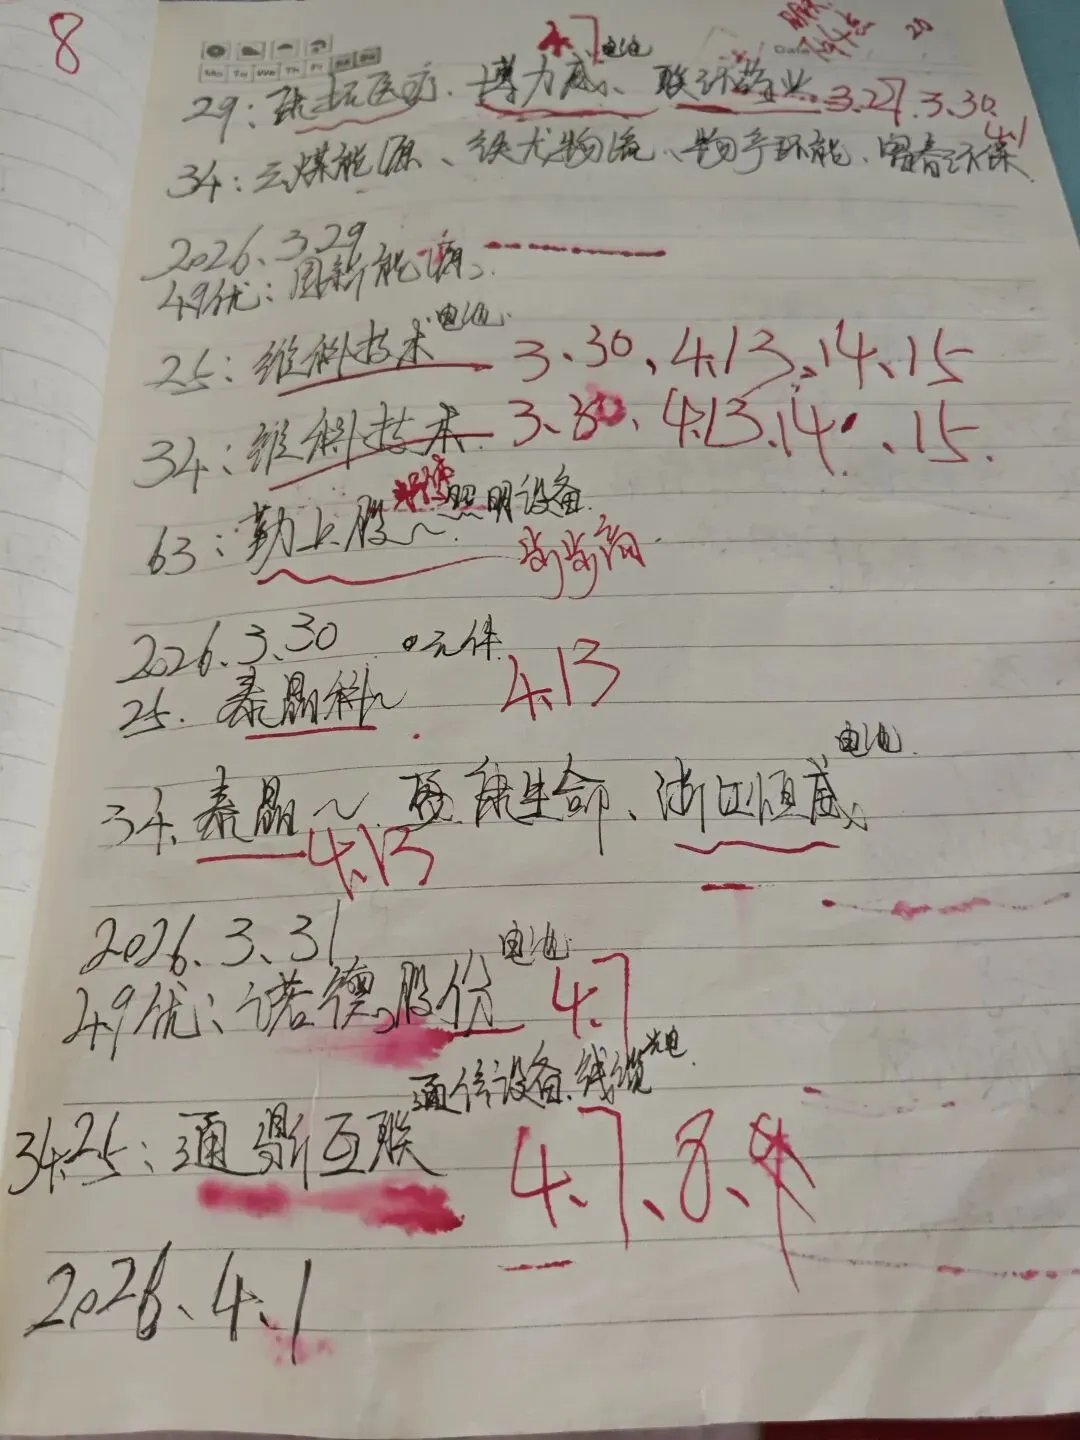 8
Mo Tu We Th Fr Sa Su
4.7 电池
Date
20
29：珐玛医疗、博力威、联环药业 3.27、3.30、4.1
34：云煤能源、铁龙物流、物产环能、富春环保
2026、3.29
49优：固新能源、
25：维科技术 电池 3、30、4.13、14、15
34：维科技术 3、30、4.13、14、15
63：勤上股～ 照明设备 步步高
2026、3、30 元件
25、泰晶科～ 4.13
34、泰晶～ 4.13 、康生命、浙江恒威 电池
2026、3、31
49优：诺德股份 电池 4.7
34.25：通鼎互联 通信设备、线缆 光电 4、7、8、9
2026、4、1